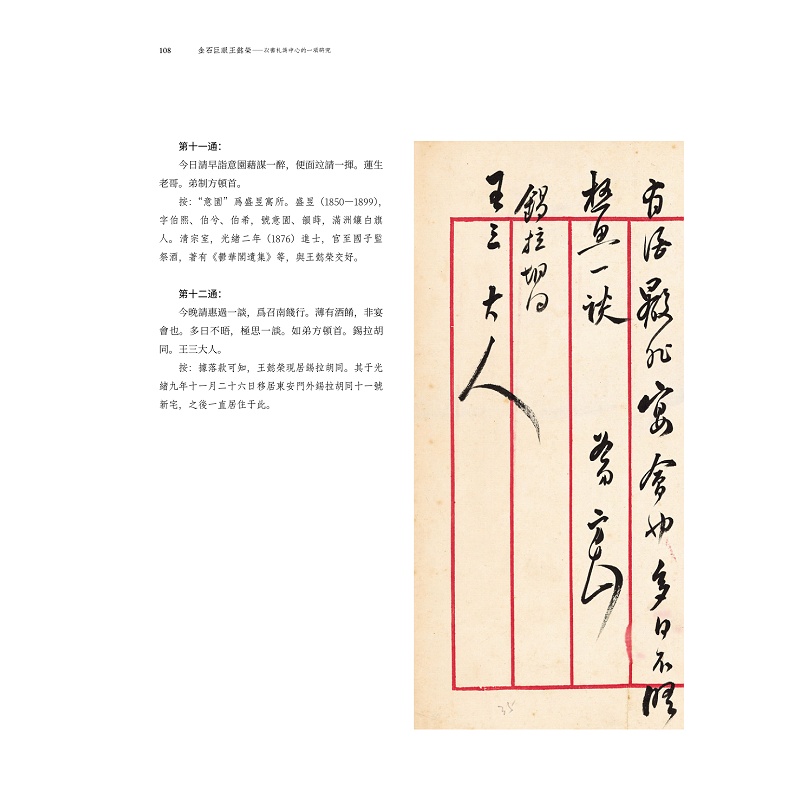 108 金石巨眼王懿榮——以書札爲中心的一項研究
第十一通：
今日清早詣意園藉謀一醉，便面竝請一揮。蓮生
老哥。弟制方頓首。
按：“意園”爲盛昱寓所。盛昱（1850—1899），
字伯熙、伯兮、伯希，號意園、韻蒔，滿洲鑲白旗
人。清宗室，光緒二年（1876）進士，官至國子監
祭酒，著有《鬱華閣遺集》等，與王懿榮交好。
第十二通：
今晚請惠過一談，爲召南餞行。薄有酒餚，非宴
會也。多日不晤，極思一談。如弟方頓首。錫拉胡
同。王三大人。
按：據落款可知，王懿榮現居錫拉胡同。其于光
緒九年十一月二十六日移居東安門外錫拉胡同十一號
新宅，之後一直居住于此。
有酒餚非宴會也多日不晤
極思一談 如弟方頓首
錫拉胡同
王三大人
35